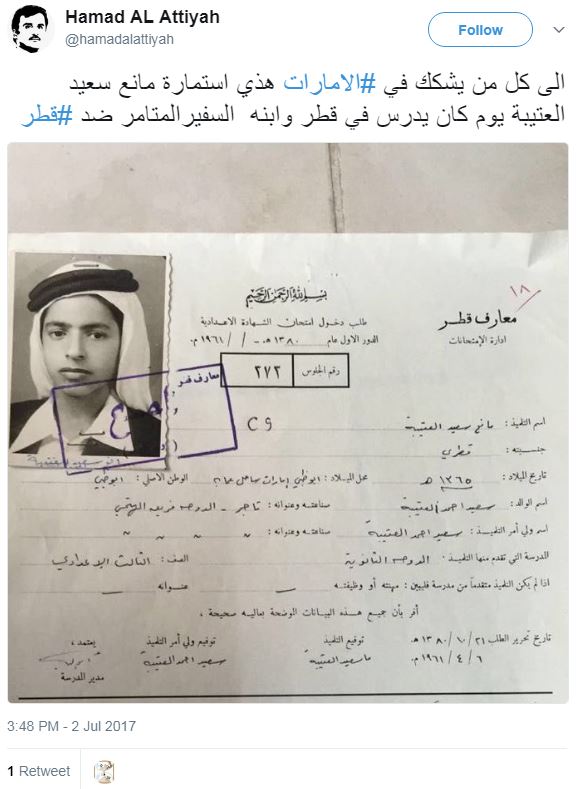 Hamad AL Attiyah
@hamadalattiyah
Follow
الى كل من يشكك في #الامارات هذي استمارة مانع سعيد
العتيبة يوم كان يدرس في قطر وابنه السفيرالمتامر ضد #قطر
بسم الله الرحمن الرحيم
١٨
معارف قطر
ادارة الإمتحانات
طلب دخول امتحان الشهادة الاعدادية
الدور الاول عام ١٣٨٠ هـ - / / ١٩٦١ م.
رقم الجلوس ٢٧٢
معارف قطر
C9
اسم التلميذ : مانع سعيد العتيبة
جنسيته : قطري
تاريخ الميلاد : ١٣٦٥ هـ محل الميلاد : ابوظبي إمارات ساحل عمان الوطن الأصلي : ابوظبي
اسم الوالد : سعيد احمد العتيبة صناعته وعنوانه : تاجر - الدوحة فريق الهتمي
اسم ولي أمر التلميذ : سعيد احمد العتيبة صناعته وعنوانه : " " " "
المدرسة التي تقدم منها التلميذ : الدوحة الثانوية الصف : الثالث الإعدادي
اذا لم يكن التلميذ متقدماً من مدرسة فليبين : مهنته أو وظيفته — عنوانه —
أقر بأن جميع هذه البيانات الوضحة بعاليه صحيحة ،
تاريخ تحرير الطلب ٢١ / ١٠ / ١٣٨٠ هـ. توقيع التلميذ توقيع ولي أمر التلميذ يعتمد ،
٦ / ٤ / ١٩٦١ م. مانع سعيد العتيبة سعيد احمد العتيبة
مدير المدرسة
3:48 PM - 2 Jul 2017
1 Retweet